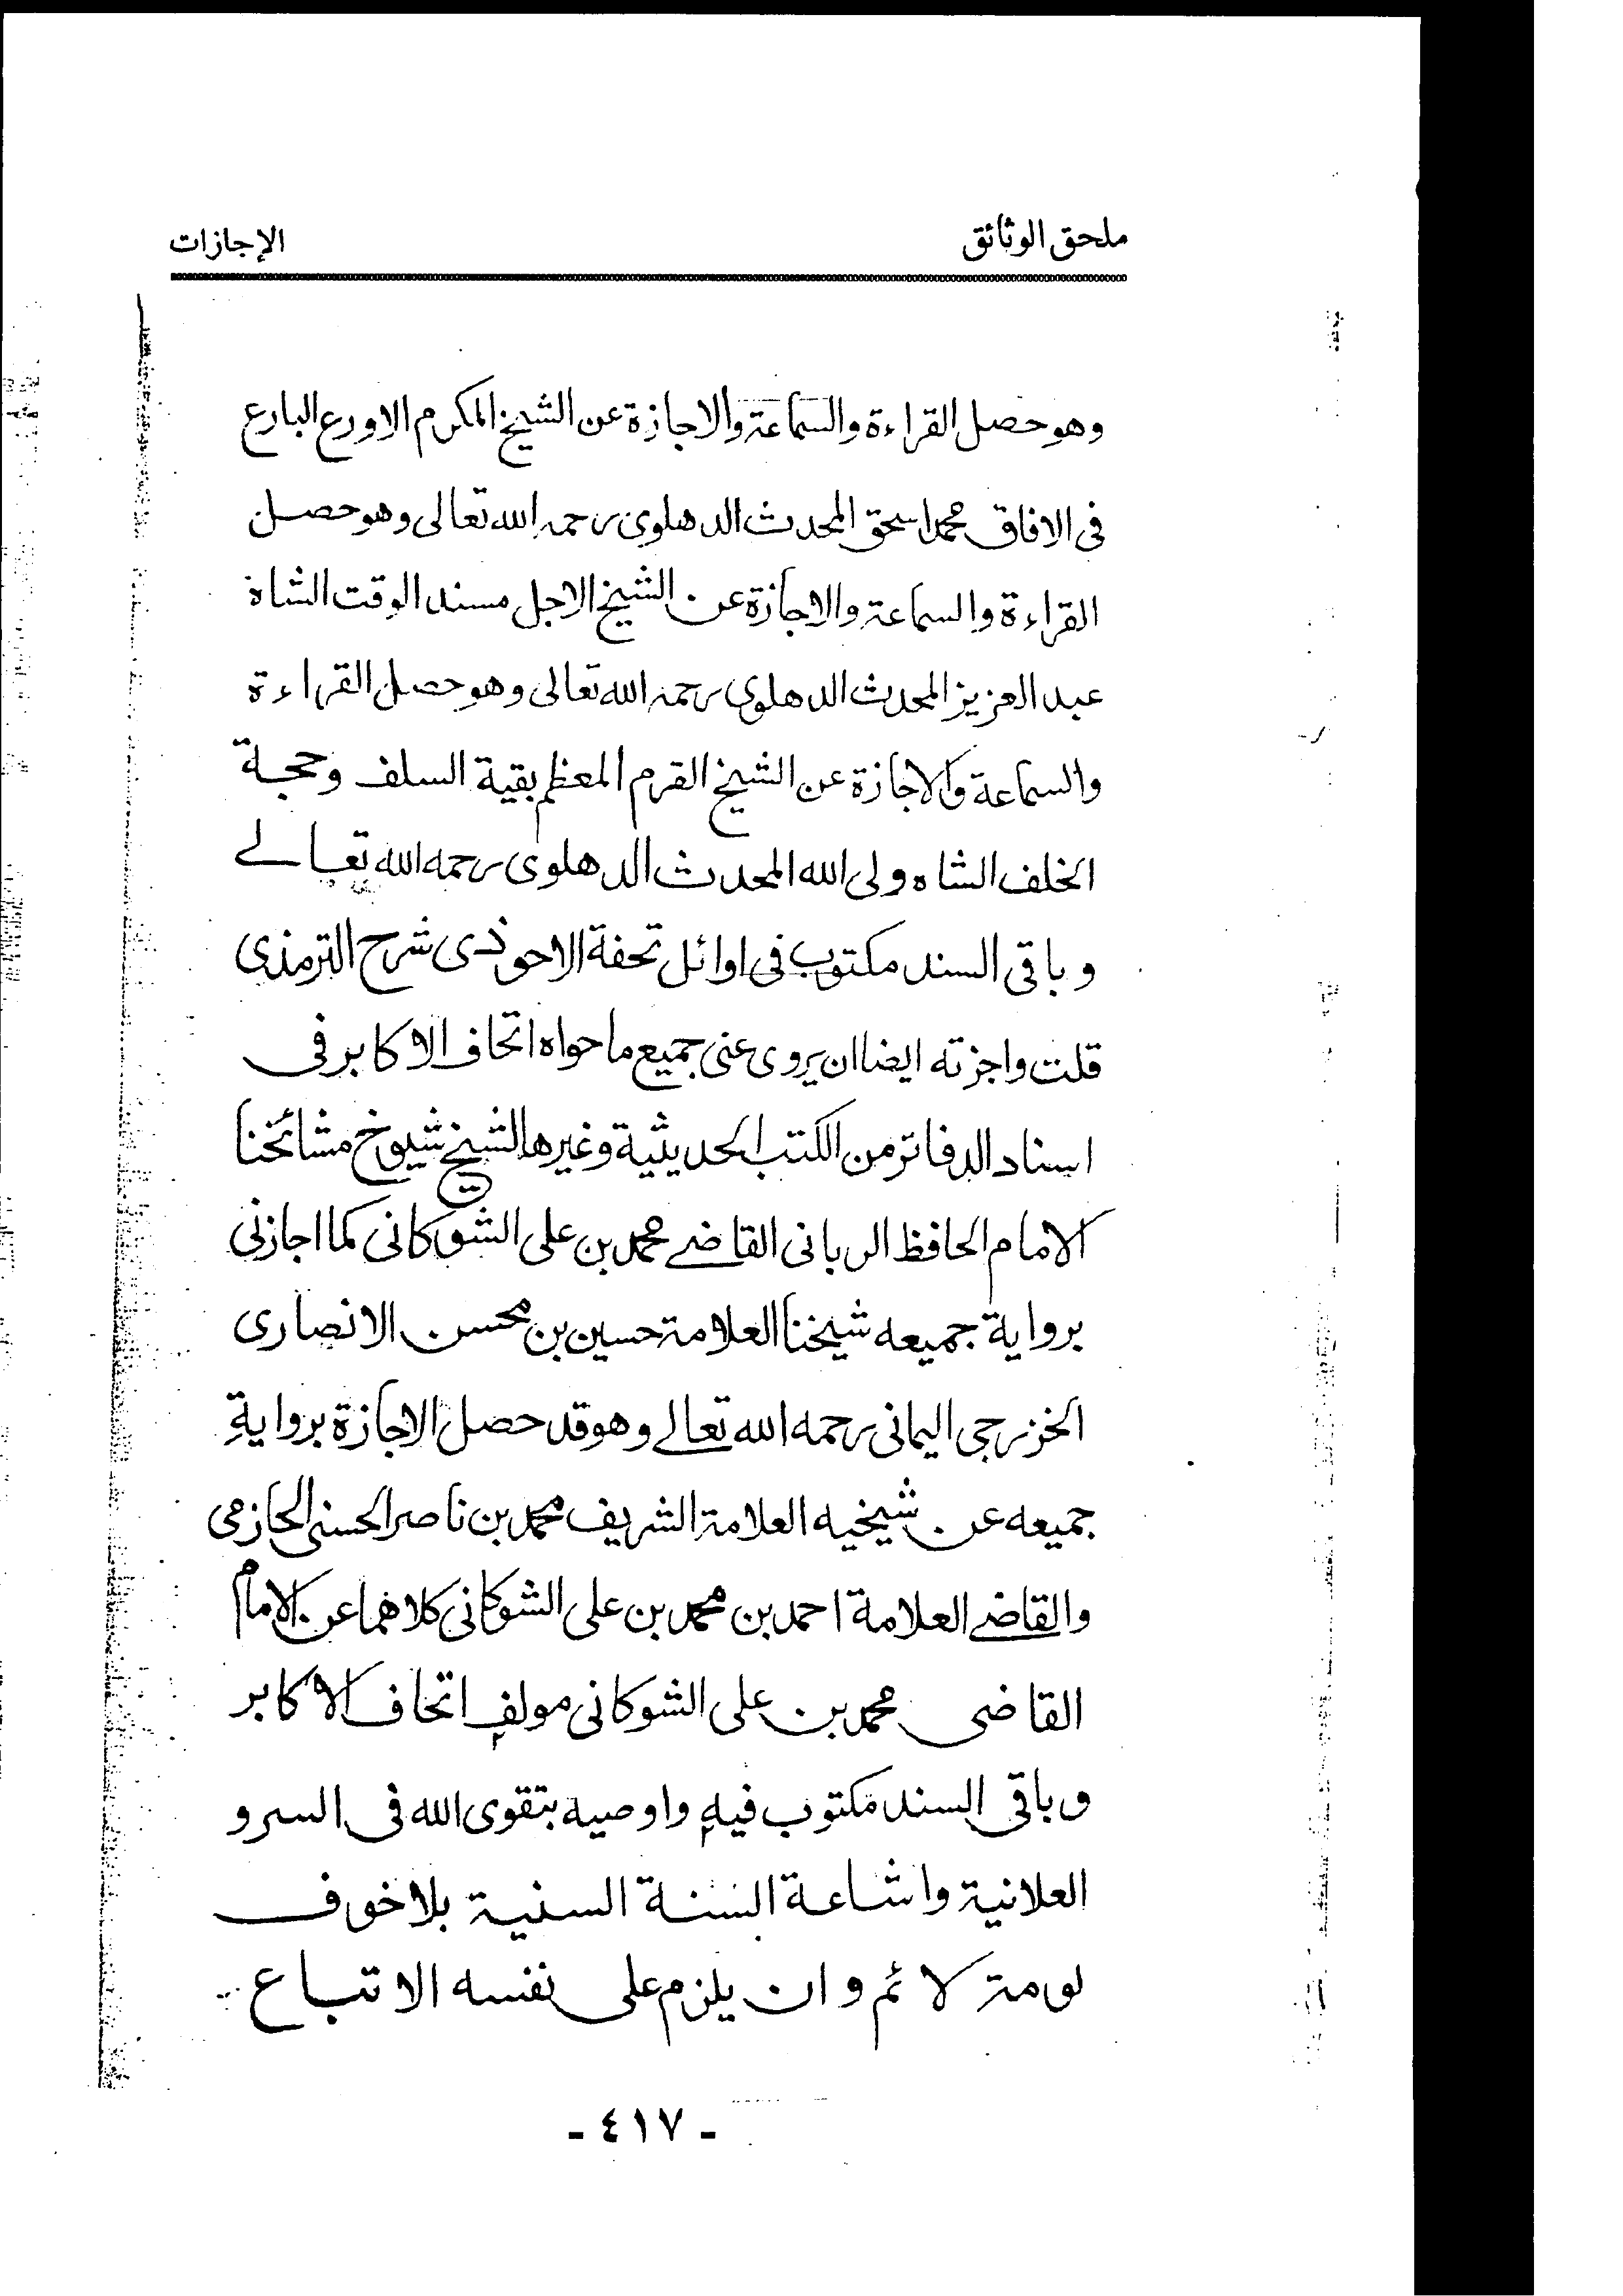 ملحق الوثائق
الإجازات
وهو حصل القراءة والسماعة والاجازة عن الشيخ المكرم الاورع البارع
فى الافاق محمد اسحق المحدث الدهلوى رحمه الله تعالى وهو حصل
القراءة والسماعة والاجازة عن الشيخ الاجل مسند الوقت الشاه
عبد العزيز المحدث الدهلوى رحمه الله تعالى وهو حصل القراءة
والسماعة والاجازة عن الشيخ القرم المعظم بقية السلف وحجة
الخلف الشاه ولى الله المحدث الدهلوى رحمه الله تعالے
وباقى السند مكتوب فى اوائل تحفة الاحوذى شرح الترمذى
قلت واجزته ايضا ان يروى عنى جميع ما حواه اتحاف الاكابر فى
اسناد الدفاتر من الكتب الحديثية وغيرها لشيخ شيوخ مشائخنا
الامام الحافظ الربانى القاضے محمد بن على الشوكانى كما اجازنى
برواية جميعه شيخنا العلامة حسين بن محسن الانصارى
الخزرجى اليمانى رحمه الله تعالے وهو قد حصل الاجازة برواية
جميعه عن شيخيه العلامة الشريف محمد بن ناصر الحسنى الحازمى
والقاضے العلامة احمد بن محمد بن على الشوكانى كلاهما عن الامام
القاضى محمد بن على الشوكانى مولف اتحاف الاكابر
وباقى السند مكتوب فيه واوصيه بتقوى الله فى السر و
العلانية واشاعة السنة السنية بلا خوف
لومة لائم وان يلزم على نفسه الاتباع
- ٤١٧ -